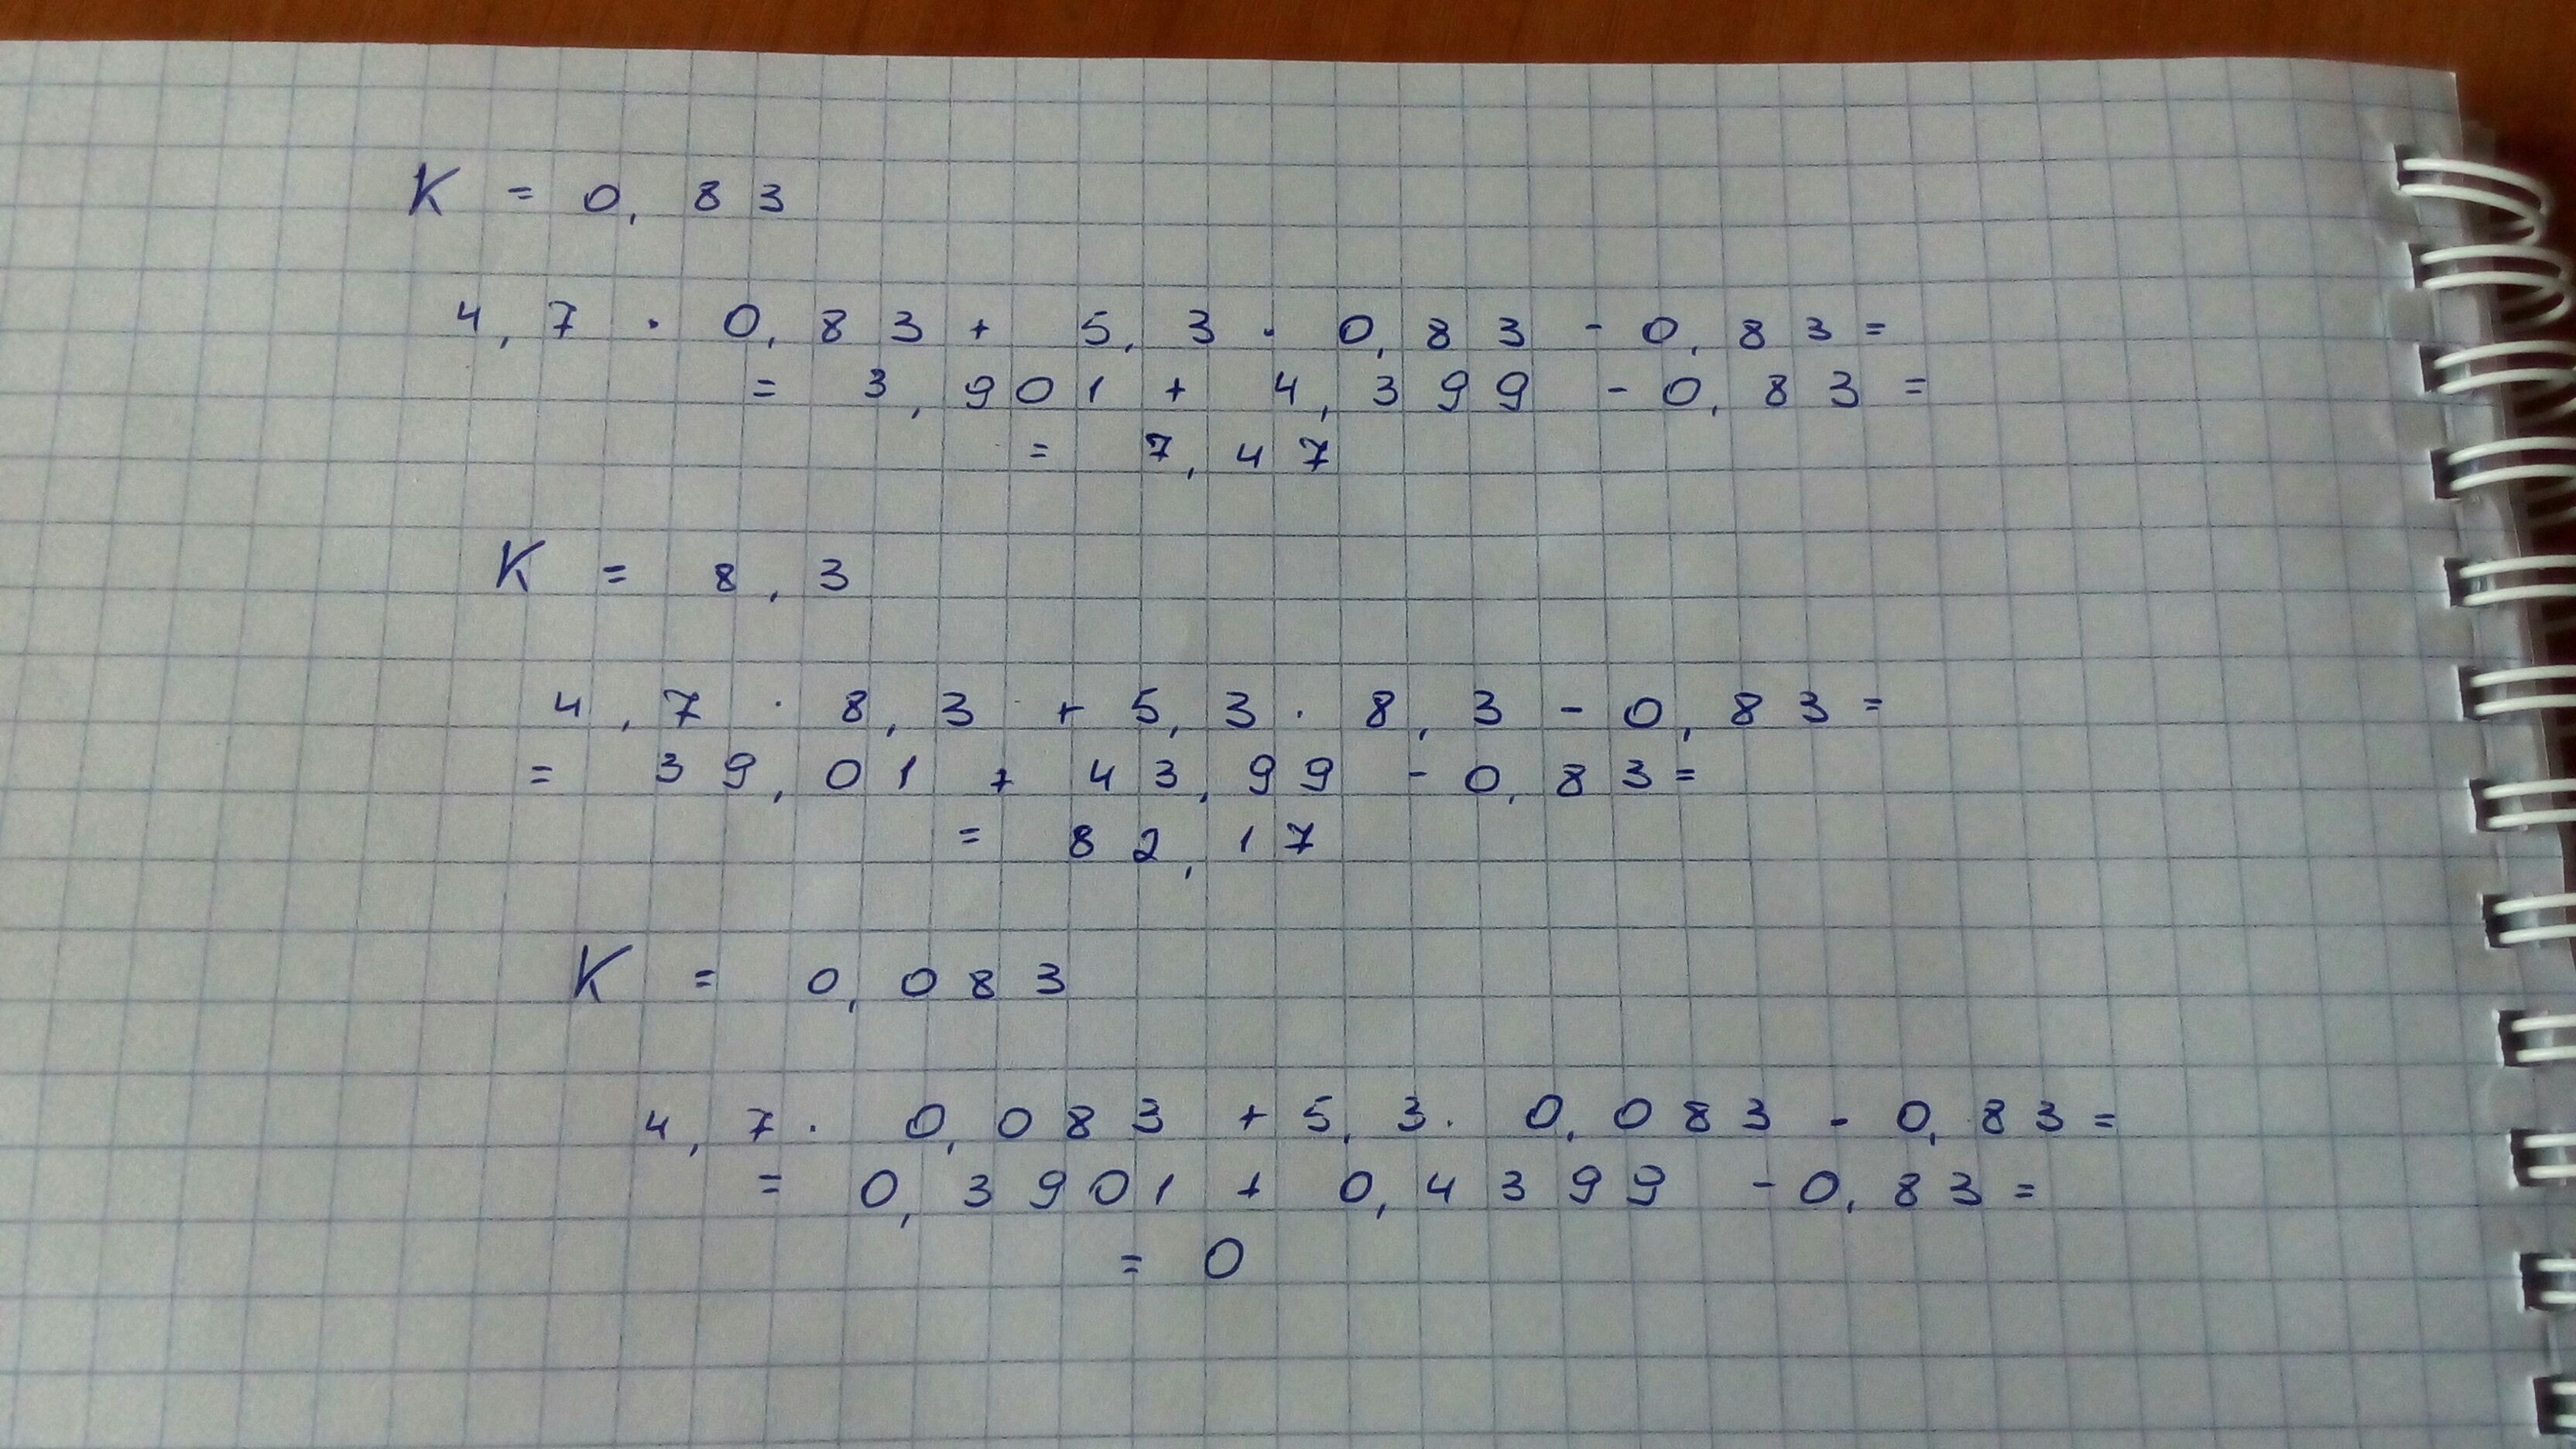 K = 0,83
4,7 · 0,83 + 5,3 · 0,83 - 0,83 =
= 3,901 + 4,399 - 0,83 =
= 7,47
K = 8,3
4,7 · 8,3 + 5,3 · 8,3 - 0,83 =
= 39,01 + 43,99 - 0,83 =
= 82,17
K = 0,083
4,7 · 0,083 + 5,3 · 0,083 - 0,83 =
= 0,3901 + 0,4399 - 0,83 =
= 0